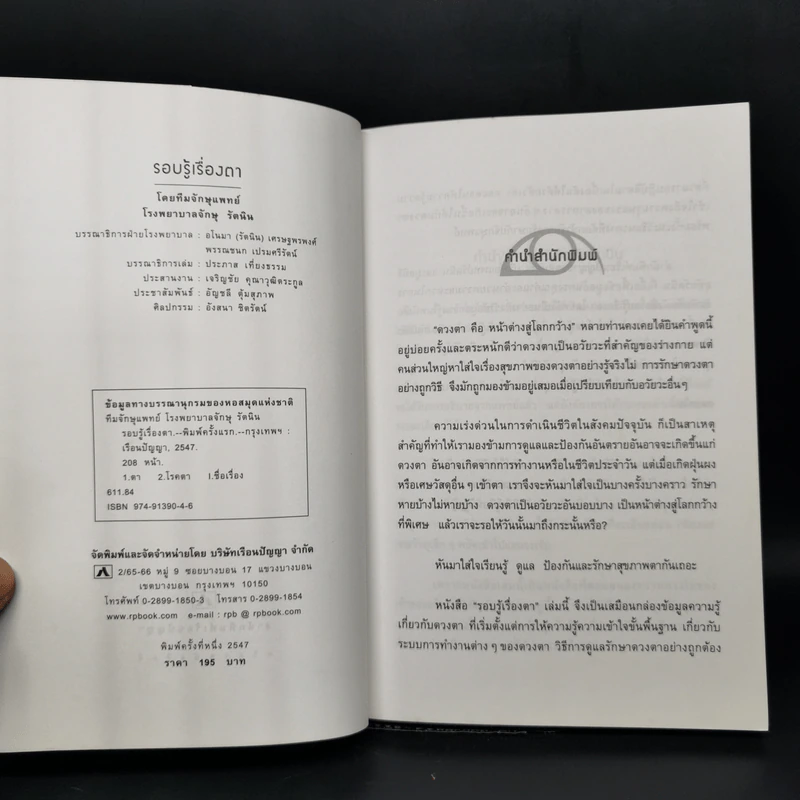 รอบรู้เรื่องตา
โดยทีมจักษุแพทย์
โรงพยาบาลจักษุ รัตนิน
บรรณาธิการฝ่ายโรงพยาบาล : อโนมา (รัตนิน) เศรษฐพรพงศ์
พรรณชนก เปรมศรีรัตน์
บรรณาธิการเล่ม : ประภาส เที่ยงธรรม
ประสานงาน : เจริญชัย คุณาวุฒิตระกูล
ประชาสัมพันธ์ : อัญชลี คุ้มสุภาพ
ศิลปกรรม : อังสนา ชิตรัตน์
ข้อมูลทางบรรณานุกรมของหอสมุดแห่งชาติ
ทีมจักษุแพทย์ โรงพยาบาลจักษุ รัตนิน
รอบรู้เรื่องตา.--พิมพ์ครั้งแรก.--กรุงเทพฯ :
เรือนปัญญา, 2547.
208 หน้า.
1.ตา 2.โรคตา I.ชื่อเรื่อง
611.84
ISBN 974-91390-4-6
จัดพิมพ์และจัดจำหน่ายโดย บริษัทเรือนปัญญา จำกัด
2/65-66 หมู่ 9 ซอยบางบอน 17 แขวงบางบอน
เขตบางบอน กรุงเทพฯ 10150
โทรศัพท์ 0-2899-1850-3 โทรสาร 0-2899-1854
www.rpbook.com e-mail : rpb @ rpbook.com
พิมพ์ครั้งที่หนึ่ง 2547
ราคา 195 บาท
คำนำสำนักพิมพ์
"ดวงตา คือ หน้าต่างสู่โลกกว้าง" หลายท่านคงเคยได้ยินคำพูดนี้
อยู่บ่อยครั้งและตระหนักดีว่าดวงตาเป็นอวัยวะที่สำคัญของร่างกาย แต่
คนส่วนใหญ่หาใส่ใจเรื่องสุขภาพของดวงตาอย่างรู้จริงไม่ การรักษาดวงตา
อย่างถูกวิธี จึงมักถูกมองข้ามอยู่เสมอเมื่อเปรียบเทียบกับอวัยวะอื่นๆ
ความเร่งด่วนในการดำเนินชีวิตในสังคมปัจจุบัน ก็เป็นสาเหตุ
สำคัญที่ทำให้เรามองข้ามการดูแลและป้องกันอันตรายอันอาจจะเกิดขึ้นแก่
ดวงตา อันอาจเกิดจากการทำงานหรือในชีวิตประจำวัน แต่เมื่อเกิดฝุ่นผง
หรือเศษวัสดุอื่นๆ เข้าตา เราจึงจะหันมาใส่ใจเป็นบางครั้งบางคราว รักษา
หายบ้างไม่หายบ้าง ดวงตาเป็นอวัยวะอันบอบบาง เป็นหน้าต่างสู่โลกกว้าง
ที่พิเศษ แล้วเราจะรอให้วันนั้นมาถึงกระนั้นหรือ?
หันมาใส่ใจเรียนรู้ ดูแล ป้องกันและรักษาสุขภาพตากันเถอะ
หนังสือ "รอบรู้เรื่องตา" เล่มนี้ จึงเป็นเสมือนกล่องข้อมูลความรู้
เกี่ยวกับดวงตา ที่เริ่มตั้งแต่การให้ความรู้ความเข้าใจขั้นพื้นฐาน เกี่ยวกับ
ระบบการทำงานต่างๆ ของดวงตา วิธีการดูแลรักษาดวงตาอย่างถูกต้อง